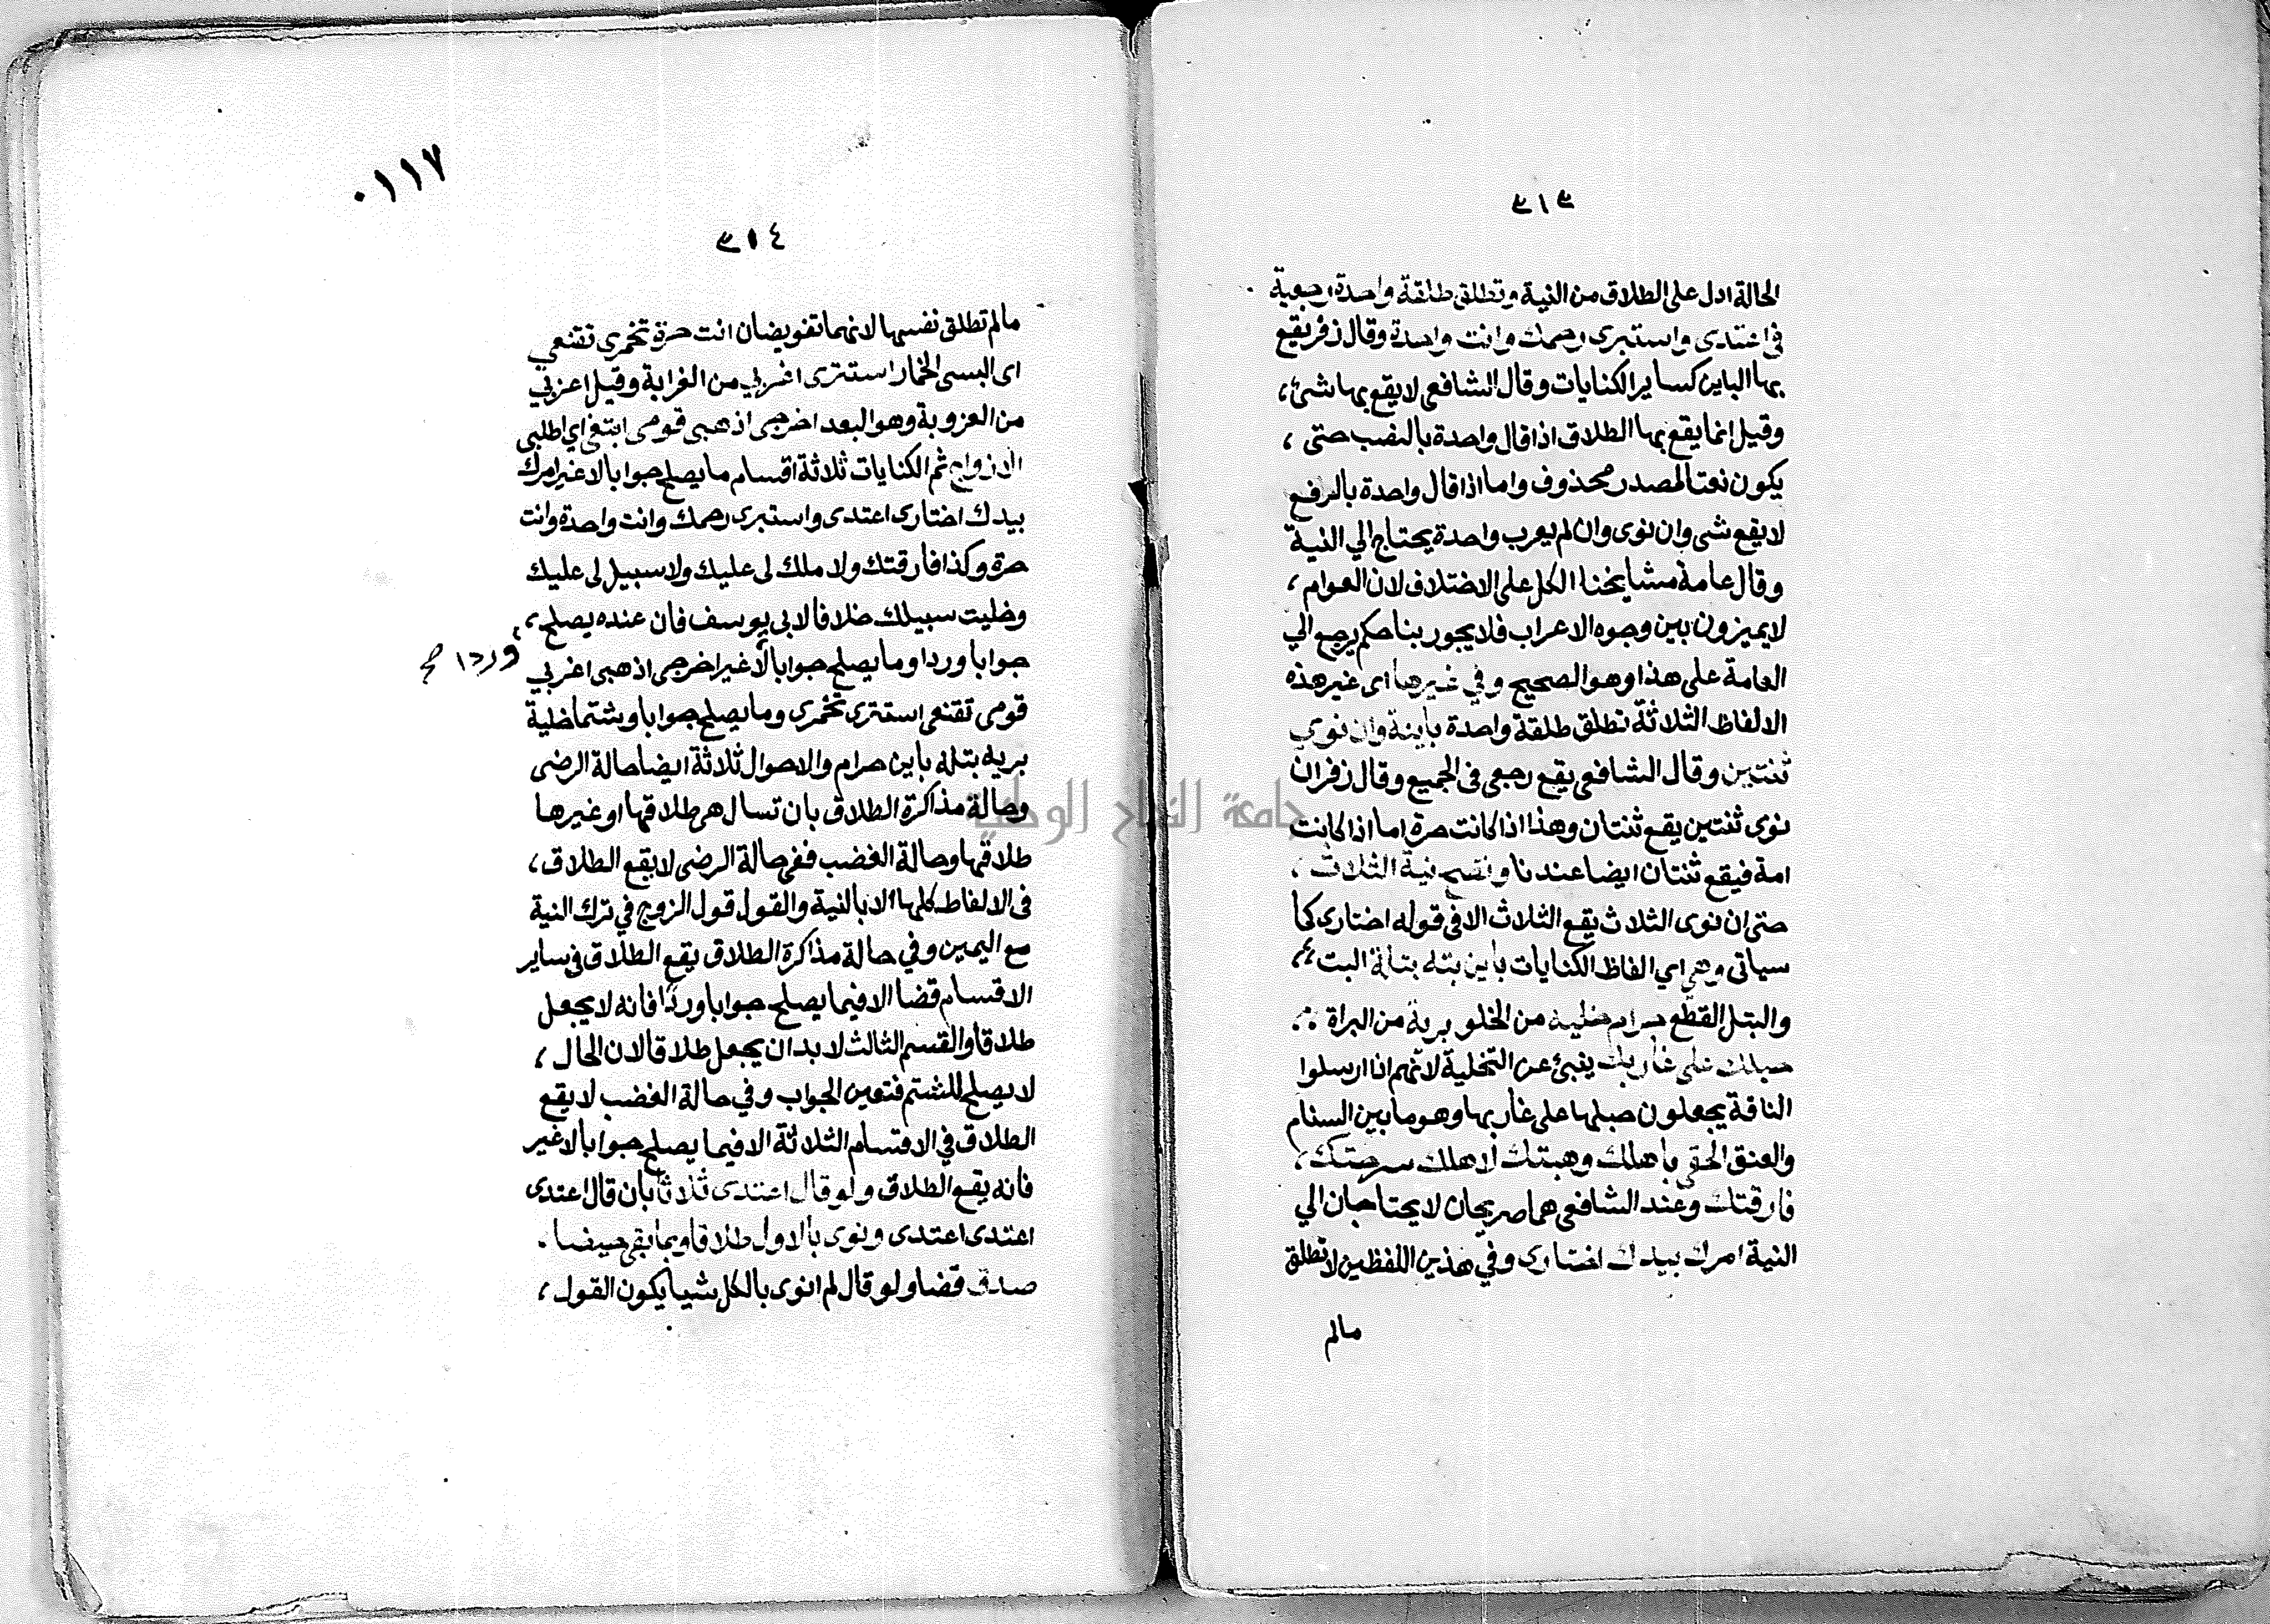 ٣١٣
الحالة ادل على الطلاق من النية وتطلق طلقة واحدة رجعية
في اعتدى واستبرى رحمك وانت واحدة وقال زفر يقع
بها الباين كساير الكنايات وقال الشافعي لا يقع بها شئ،
وقيل انما يقع بها الطلاق اذا قال واحدة بالنصب حتى،
يكون نعتا لمصدر محذوف واما اذا قال واحدة بالرفع
لا يقع شى وان نوى وان لم يعرب واحدة يحتاج الي النية
وقال عامة مشايخنا الكل على الاختلاف لان العوام،
لا يميزون بين وجوه الاعراب فلا يجوز بنا حكم يرجع الي
العامة على هذا وهو الصحيح وفي غيرها اى غير هذه
الالفاظ الثلاثة تطلق طلقة واحدة باينة وان نوي
ثنتين وقال الشافعي يقع رجعي في الجميع وقال زفر ان
نوى ثنتين يقع ثنتان وهذا اذا كانت حرة اما اذا كانت
امة فيقع ثنتان ايضا عندنا وتصح نية الثلاث،
حتى ان نوى الثلاث يقع الثلاث الا في قوله اختارى كما
سياتى وهي اي الفاظ الكنايات باين بته بتلة البت،
والبتل القطع حرام خلية من الخلو برية من البراة
حبلك على غاربك ينبئ عن التخلية لانهم اذا ارسلوا
الناقة يجعلون حبلها على غاربها وهو ما بين السنام
والعنق الحقى باهلك وهبتك لاهلك سرحتك،
فارقتك وعند الشافعي هما صريحان لا يحتاجان الي
النية امرك بيدك اختارى وفي هذين اللفظين لا تطلق
مالم
٠١١٧
٣١٤
مالم تطلق نفسها لانهما تفويضان انت حرة تخمرى تقنعي
اى البسى الخمار استترى اغربي من الغرابة وقيل اعزبي
من العزوبة وهو البعد اخرجى اذهبى قومى ابتغي اي اطلبى
الازواج ثم الكنايات ثلاثة اقسام ما يصلح جوابا لا غير امرك
بيدك اختارى اعتدى واستبرى رحمك وانت واحدة وانت
حرة وكذا فارقتك ولا ملك لى عليك ولا سبيل لى عليك
وخليت سبيلك خلافا لابى يوسف فان عنده يصلح،
جوابا وردا وما يصلح جوابا لا غير اخرجى اذهبى اغربي
وردا صح
قومى تقنعى استترى تخمرى وما يصلح جوابا وشتما خلية
بريه بتله باين حرام والاحوال ثلاثة ايضا حالة الرضى
وحالة مذاكرة الطلاق بان تسال هي طلاقها او غيرها
طلاقها وحالة الغضب ففي حالة الرضى لا يقع الطلاق،
في الالفاظ كلها الا بالنية والقول قول الزوج في ترك النية
مع اليمين وفي حالة مذاكرة الطلاق يقع الطلاق في ساير
الاقسام قضا الا فيما يصلح جوابا وردا فانه لا يجعل
طلاقا والقسم الثالث لا بد ان يجعل طلاقا لان الحال،
لا يصلح للشتم فتعين الجواب وفي حالة الغضب لا يقع
الطلاق في الاقسام الثلاثة الا فيما يصلح جوابا لا غير
فانه يقع الطلاق ولو قال اعتدى ثلاثا بان قال اعتدى
اعتدى اعتدى ونوى بالاول طلاقا وبما بقي حيضا
صدق قضا ولو قال لم انوى بالكل شيا يكون القول،
جامعة النجاح الوطنية